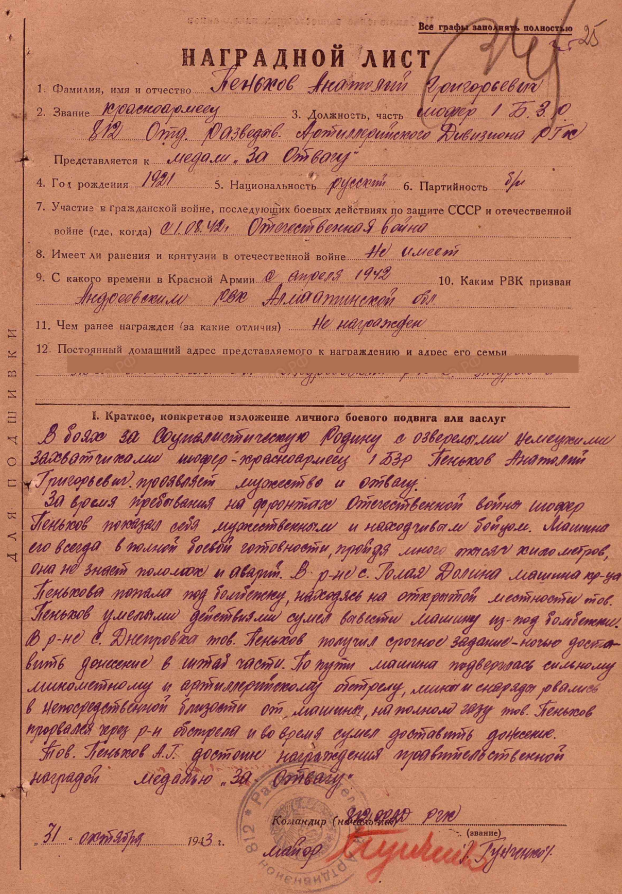 Все графы заполнять полностью
25
НАГРАДНОЙ ЛИСТ
1. Фамилия, имя и отчество Пеньков Анатолий Григорьевич
2. Звание красноармеец 3. Должность, часть шофер 1 Б.З.О
812 Отд. Разведыв. Артиллерийского Дивизиона РГК
Представляется к медали „За Отвагу"
4. Год рождения 1921 5. Национальность русский 6. Партийность б/п
7. Участие в гражданской войне, последующих боевых действиях по защите СССР и отечественной
войне (где, когда) с 1.08.42г. Отечественная война
8. Имеет ли ранения и контузии в отечественной войне Не имеет
9. С какого времени в Красной Армии с апреля 1942 10. Каким РВК призван
Андреевским РВК Алмаатинской обл
11. Чем ранее награжден (за какие отличия) Не награжден
12. Постоянный домашний адрес представляемого к награждению и адрес его семьи
ДЛЯ ПОДШИВКИ
I. Краткое, конкретное изложение личного боевого подвига или заслуг
В боях за Социалистическую Родину с озверелыми немецкими
захватчиками шофер-красноармеец 1 БЗР Пеньков Анатолий
Григорьевич проявляет мужество и отвагу.
За время пребывания на фронтах Отечественной войны шофер
Пеньков показал себя мужественным и находчивым бойцом. Машина
его всегда в полной боевой готовности, пройдя много тысяч километров,
она не знает поломок и аварий. В р-не с. Голая Долина машина кр-ца
Пенькова попала под бомбежку, находясь на открытой местности тов.
Пеньков умелыми действиями сумел вывести машину из-под бомбежки.
В р-не с. Днепровка тов. Пеньков получил срочное задание-ночью доста-
вить донесение в штаб части. По пути машина подверглась сильному
минометному и артиллерийскому обстрелу, мины и снаряды рвались
в непосредственной близости от машины, на полном газу тов. Пеньков
прорвался через р-н обстрела и во время сумел доставить донесение.
Тов. Пеньков А.Г. достоин награждения правительственной
наградой медалью „За Отвагу"
Командир (начальник) РГК
(звание)
31 октября 1943 г. майор
812